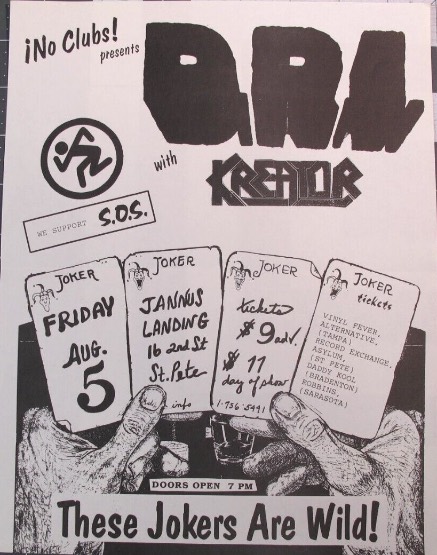 ¡No Clubs!
presents
D.R.I.
with
KREATOR
WE SUPPORT S.O.S.
JOKER
FRIDAY
AUG.
5
JOKER
JANNUS
LANDING
16 2nd St
St. Pete
info
JOKER
tickets
$9 adv.
$11
day of show
1-756-5491
JOKER
tickets
VINYL FEVER,
ALTERNATIVE,
(TAMPA)
RECORD EXCHANGE,
ASYLUM,
(ST PETE)
DADDY KOOL
(BRADENTON)
ROBBINS,
(SARASOTA)
DOORS OPEN 7 PM
These Jokers Are Wild!